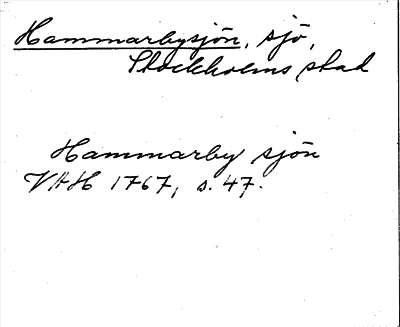 Hammarbysjön, sjö,
Stockholms stad
Hammarby sjön
VAH 1767, s. 47.